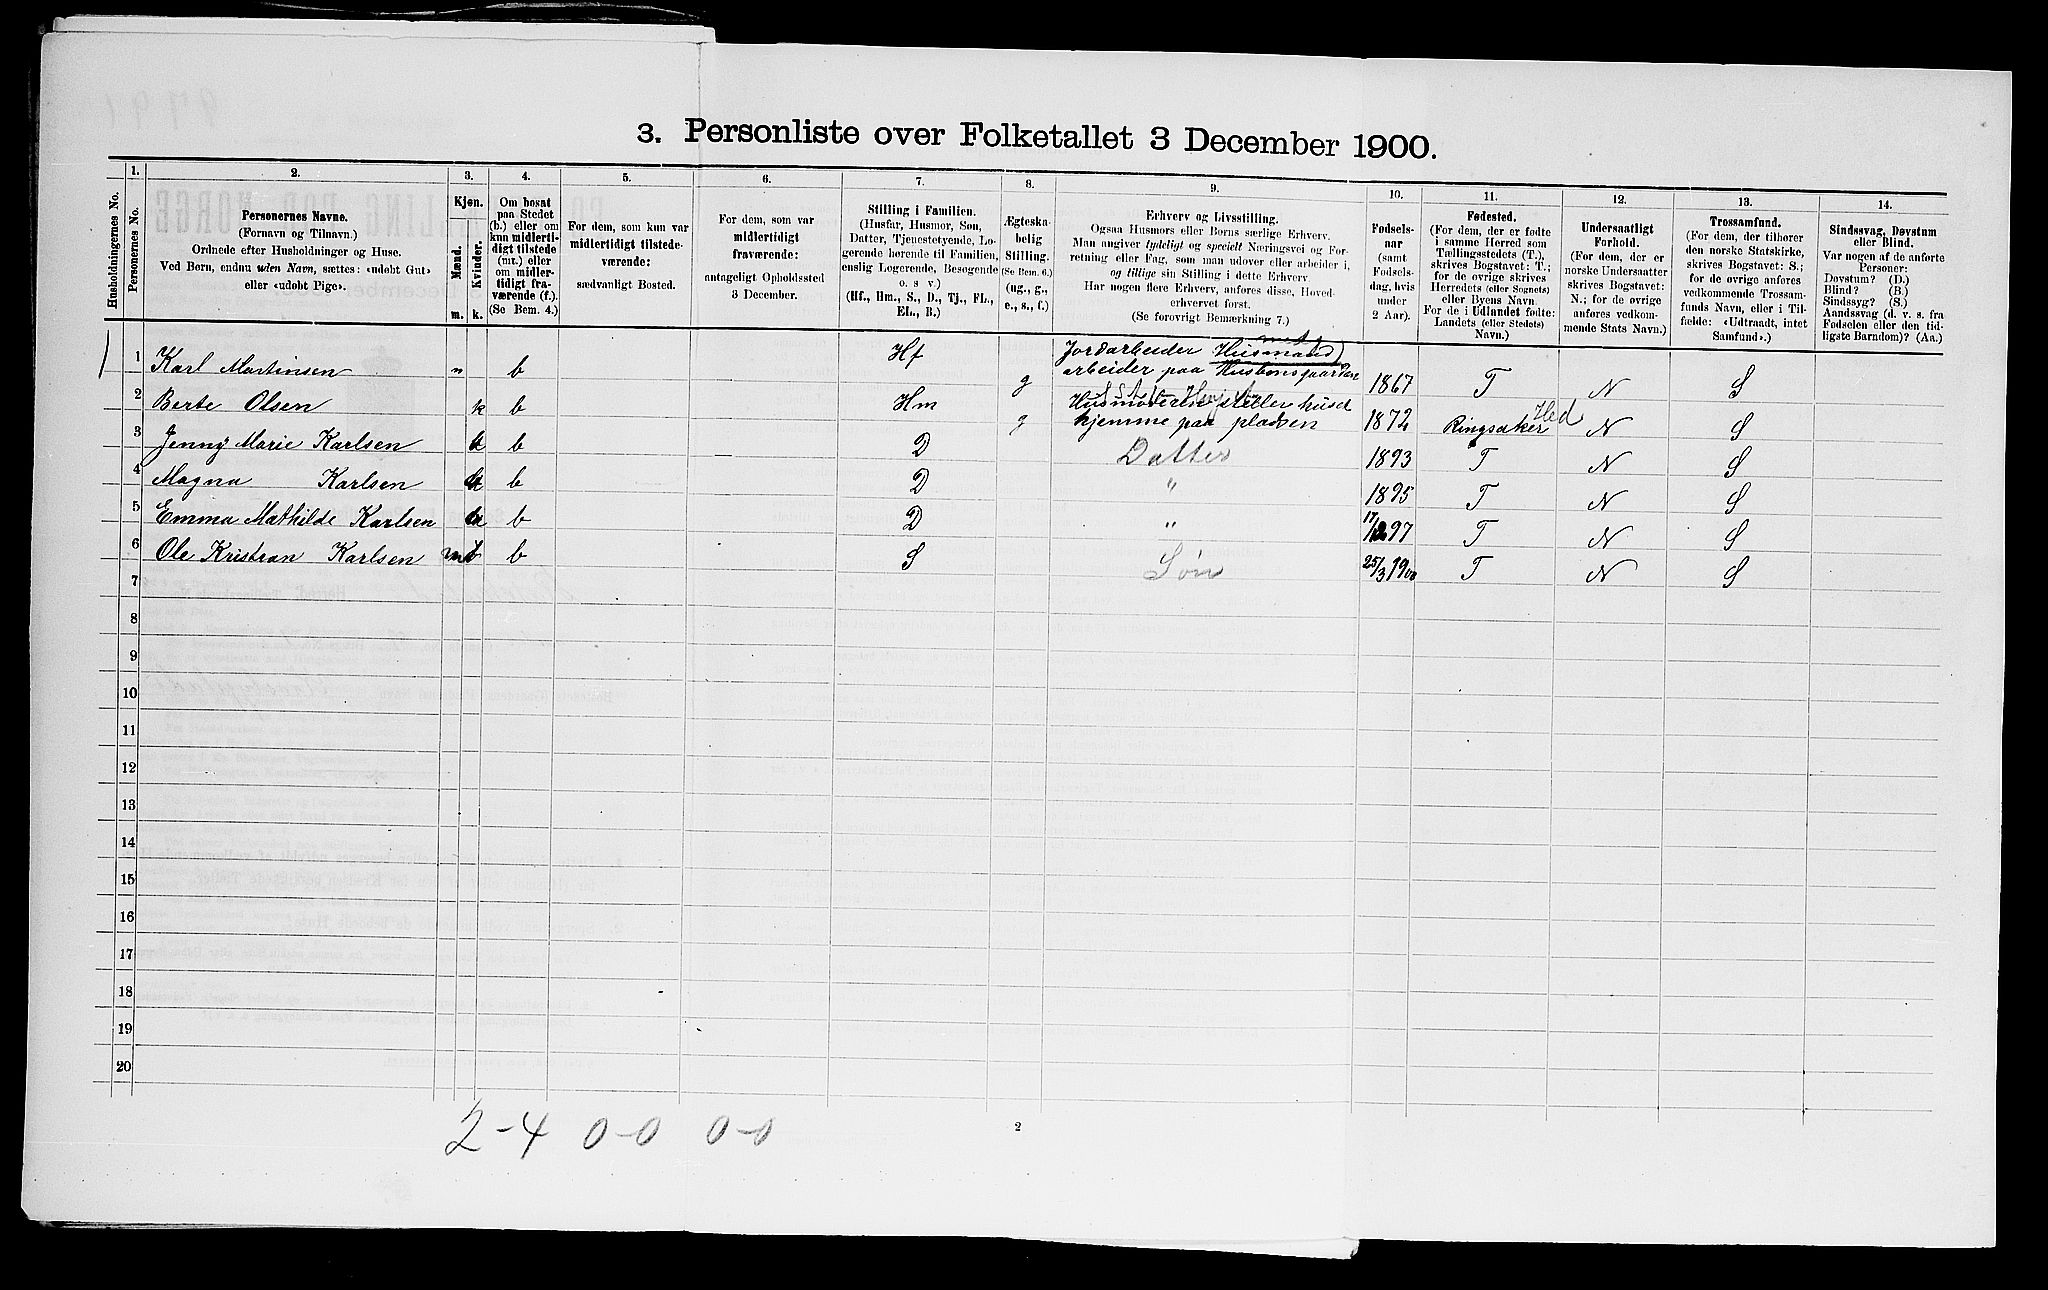 3. Personliste over Folketallet 3 December 1900.
Husholdningernes No.
1.
Personernes No.
2.
Personernes Navne.
(Fornavn og Tilnavn.)
Ordnede efter Husholdninger og Huse.
Ved Børn, endnu uden Navn, sættes: «udøbt Gut»
eller «udøbt Pige».
3.
Kjøn.
Mænd.
Kvinder.
m. k.
4.
Om bosat
paa Stedet
(b.) eller om
kun midlerti-
digt tilstede
(mt.) eller
om midler-
tidigt fra-
værende (f.).
(Se Bem. 4.)
5.
For dem, som kun var
midlertidigt tilstede-
værende:
sædvanligt Bosted.
6.
For dem, som var
midlertidigt
fraværende:
antageligt Opholdssted
3 December.
7.
Stilling i Familien.
(Husfar, Husmor, Søn,
Datter, Tjenestetyende, Lo-
gerende hørende til Familien,
enslig Logerende, Besøgende
o. s v.)
(Hf., Hm., S., D., Tj., FL.,
EL., B.)
8.
Ægteska-
belig
Stilling.
(Se Bem. 6.)
(ug., g.,
e., s., f.)
9.
Erhverv og Livsstilling.
Ogsaa Husmors eller Børns særlige Erhverv.
Man angiver tydeligt og specielt Næringsvei og For-
retning eller Fag, som man udøver eller arbeider i,
og tillige sin Stilling i dette Erhverv.
Har nogen flere Erhverv, anføres disse, Hoved-
erhvervet først.
(Se forøvrigt Bemærkning 7.)
10.
Fødsels-
aar
(samt
Fødsels-
dag, hvis
under
2 Aar).
11.
Fødested.
(For dem, der er fødte
i samme Herred som
Tællingsstedets (T.),
skrives Bogstavet: T.;
for de øvrige skrives
Herredets (eller Sognets)
eller Byens Navn.
For de i Udlandet fødte:
Landets (eller Stedets)
Navn.)
12.
Undersaatligt
Forhold.
(For dem, der er
norske Undersaatter
skrives Bogstavet:
N.; for de øvrige
anføres vedkom-
mende Stats Navn.)
13.
Trossamfund.
(For dem, der tilhører
den norske Statskirke,
skrives Bogstavet: S.;
for de øvrige anføres
vedkommende Trossam-
funds Navn, eller i Til-
fælde: «Udtraadt, intet
Samfund».)
14.
Sindssvag, Døvstum
eller Blind.
Var nogen af de anførte
Personer:
Døvstum? (D.)
Blind? (B.)
Sindssyg? (S.)
Aandssvag (d. v. s. fra
Fødselen eller den tid-
ligste Barndom)? (Aa.)
1 1 Karl Martinsen m b Hf g Jordarbeider Husmand
arbeider paa Husbonsgaarden 1867 T N S
2 Berte Olsen k b Hm g steller huset
hjemme paa pladsen 1872 Ringsaker Hed N S
3 Jenny Marie Karlsen k b D Datter 1893 T N S
4 Magna Karlsen k b D " 1895 T N S
5 Emma Mathilde Karlsen k b D " 97 T N S
6 Ole Kristian Karlsen m b S Søn 25/3 1900 T N S
7
8
9
10
11
12
13
14
15
16
17
18
19
20
2-4 0-0 0-0
2